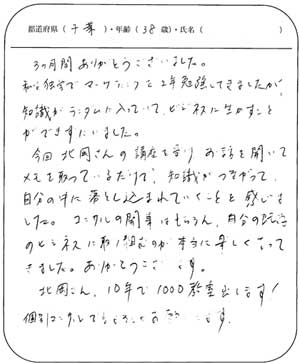 都道府県（千葉）・年齢（38歳）・氏名（　　　）
3ヶ月間ありがとうございました。
私は独学でマーケティングを2年勉強してきましたが、
知識がランダムに入っていて、ビジネスに生かすこと
ができずにいました。
今回北岡さんの講座を受け お話を聞いて
メモを取っているだけで、知識がつながって、
自分の中に落とし込まれていくことを感じま
した。コンサルの関事はもちろん、自分の
のビジネスに取り組むのが本当に楽しくなって
きました。ありがとうございます。
北岡さん、10年で1000教室出します！
個別コンサル